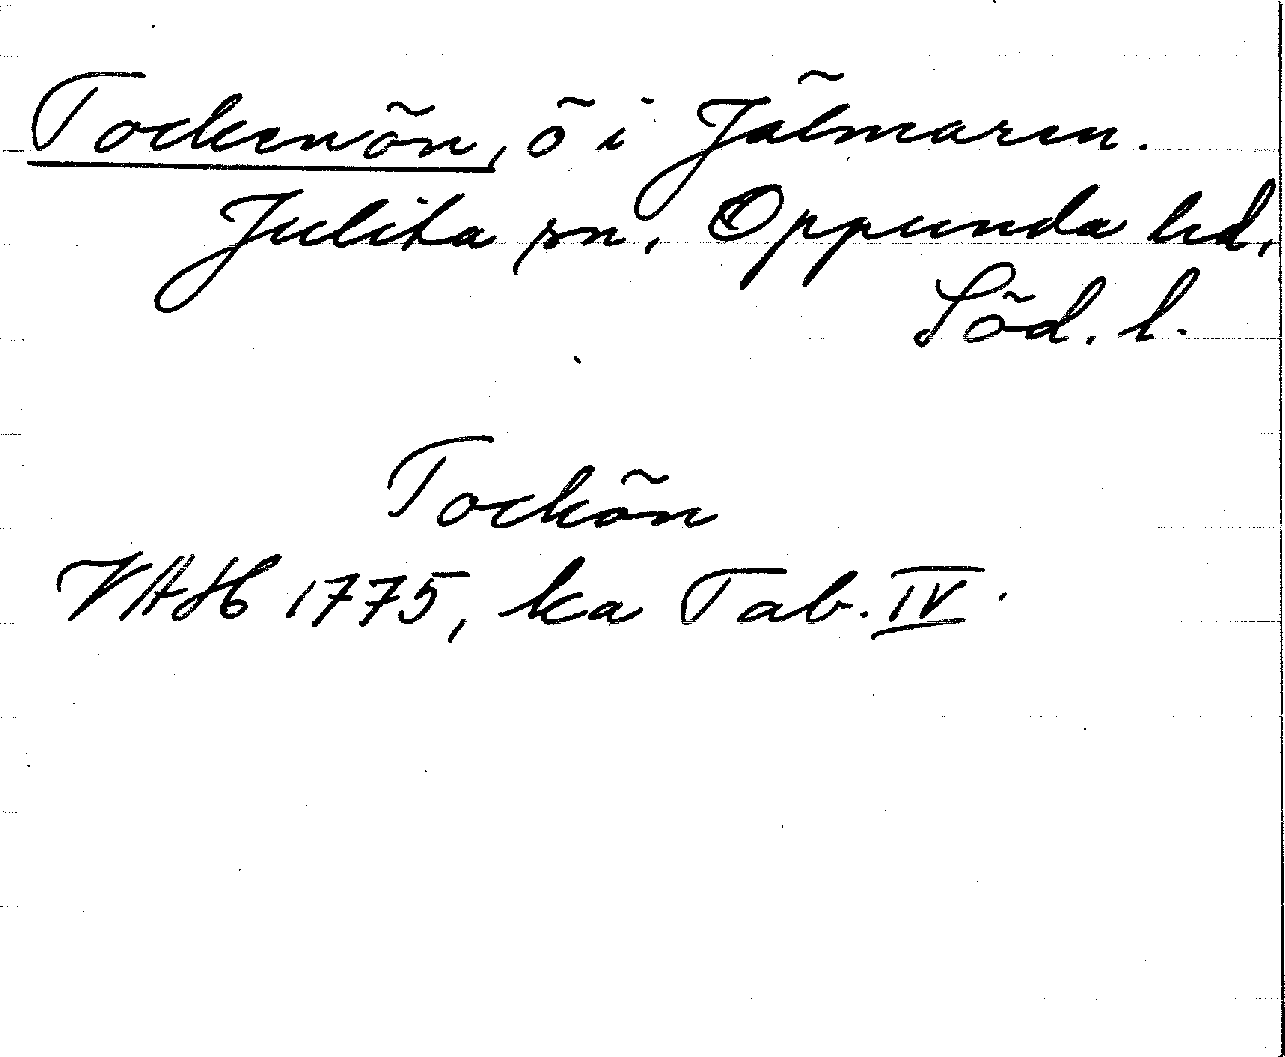 Tockenön, ö i Jälmaren.
Julita sn, Oppunda hd,
Söd. l.
Tockön
VAH 1775, ka Tab. IV.